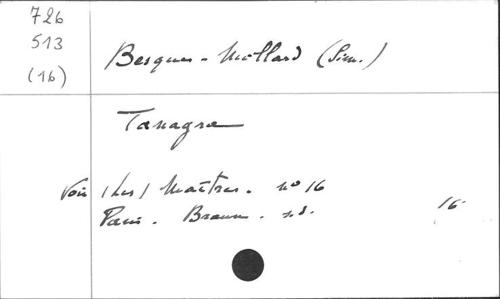 726
513
(16)
Besques-Mollard (Sim.)
Tanagra
Voir (Les) Maîtres. no 16
Paris. Braun. s.d.
16